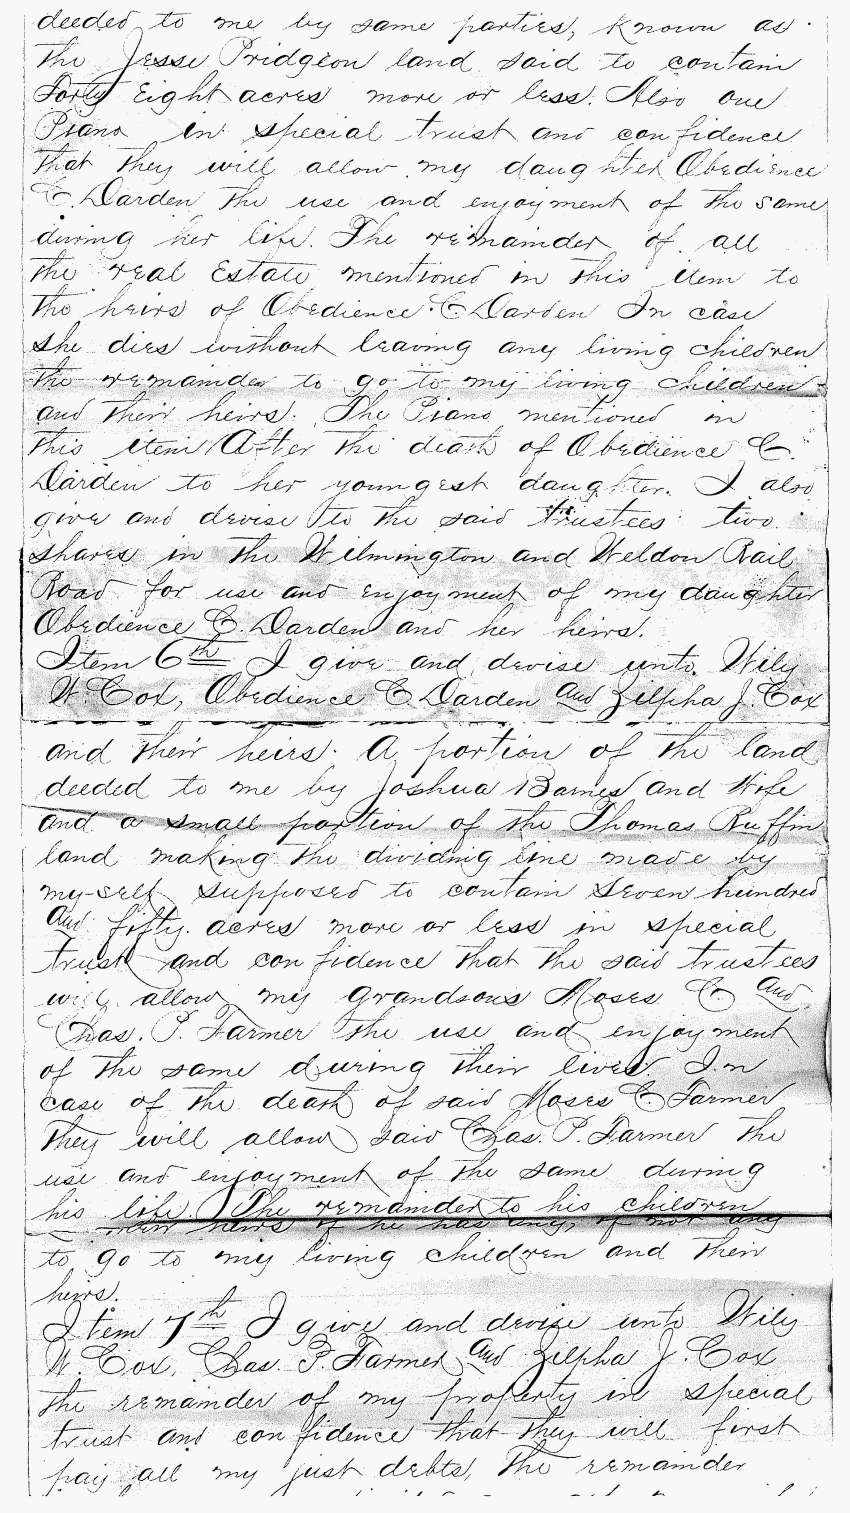 deeded to me by same parties, known as
the Jesse Pridgeon land said to contain
Forty Eight acres more or less. Also one
Piano in special trust and confidence
that they will allow my daughter Obedience
C. Darden the use and enjoyment of the same
during her life. The remainder of all
the real Estate mentioned in this item to
the heirs of Obedience C Darden In case
she dies without leaving any living children
the remainder to go to my living children
and their heirs. The Piano mentioned in
this item After the death of Obedience C.
Darden to her youngest daughter. I also
give and devise to the said trustees two
shares in the Wilmington and Weldon Rail
Road for use and enjoyment of my daughter
Obedience C. Darden and her heirs.
Item 6th I give and devise unto Wily
W. Cox, Obedience C. Darden and Zilpha J. Cox
and their heirs. A portion of the land
deeded to me by Joshua Barnes and Wife
and a small portion of the Thomas Ruffin
land making the dividing line made by
my-self supposed to contain Seven hundred
and fifty acres more or less in special
trust and confidence that the said trustees
will allow my grandsons Moses C. and
Chas. P. Farmer the use and enjoyment
of the same during their lives. In
case of the death of said Moses C Farmer
they will allow said Chas. P. Farmer the
use and enjoyment of the same during
his life. The remainder to his children
their heirs if he has any, if not any
to go to my living children and their
heirs.
Item 7th I give and devise unto Wily
W. Cox, Chas. P. Farmer and Zilpha J. Cox
the remainder of my property in special
trust and confidence that they will first
pay all my just debts, the remainder